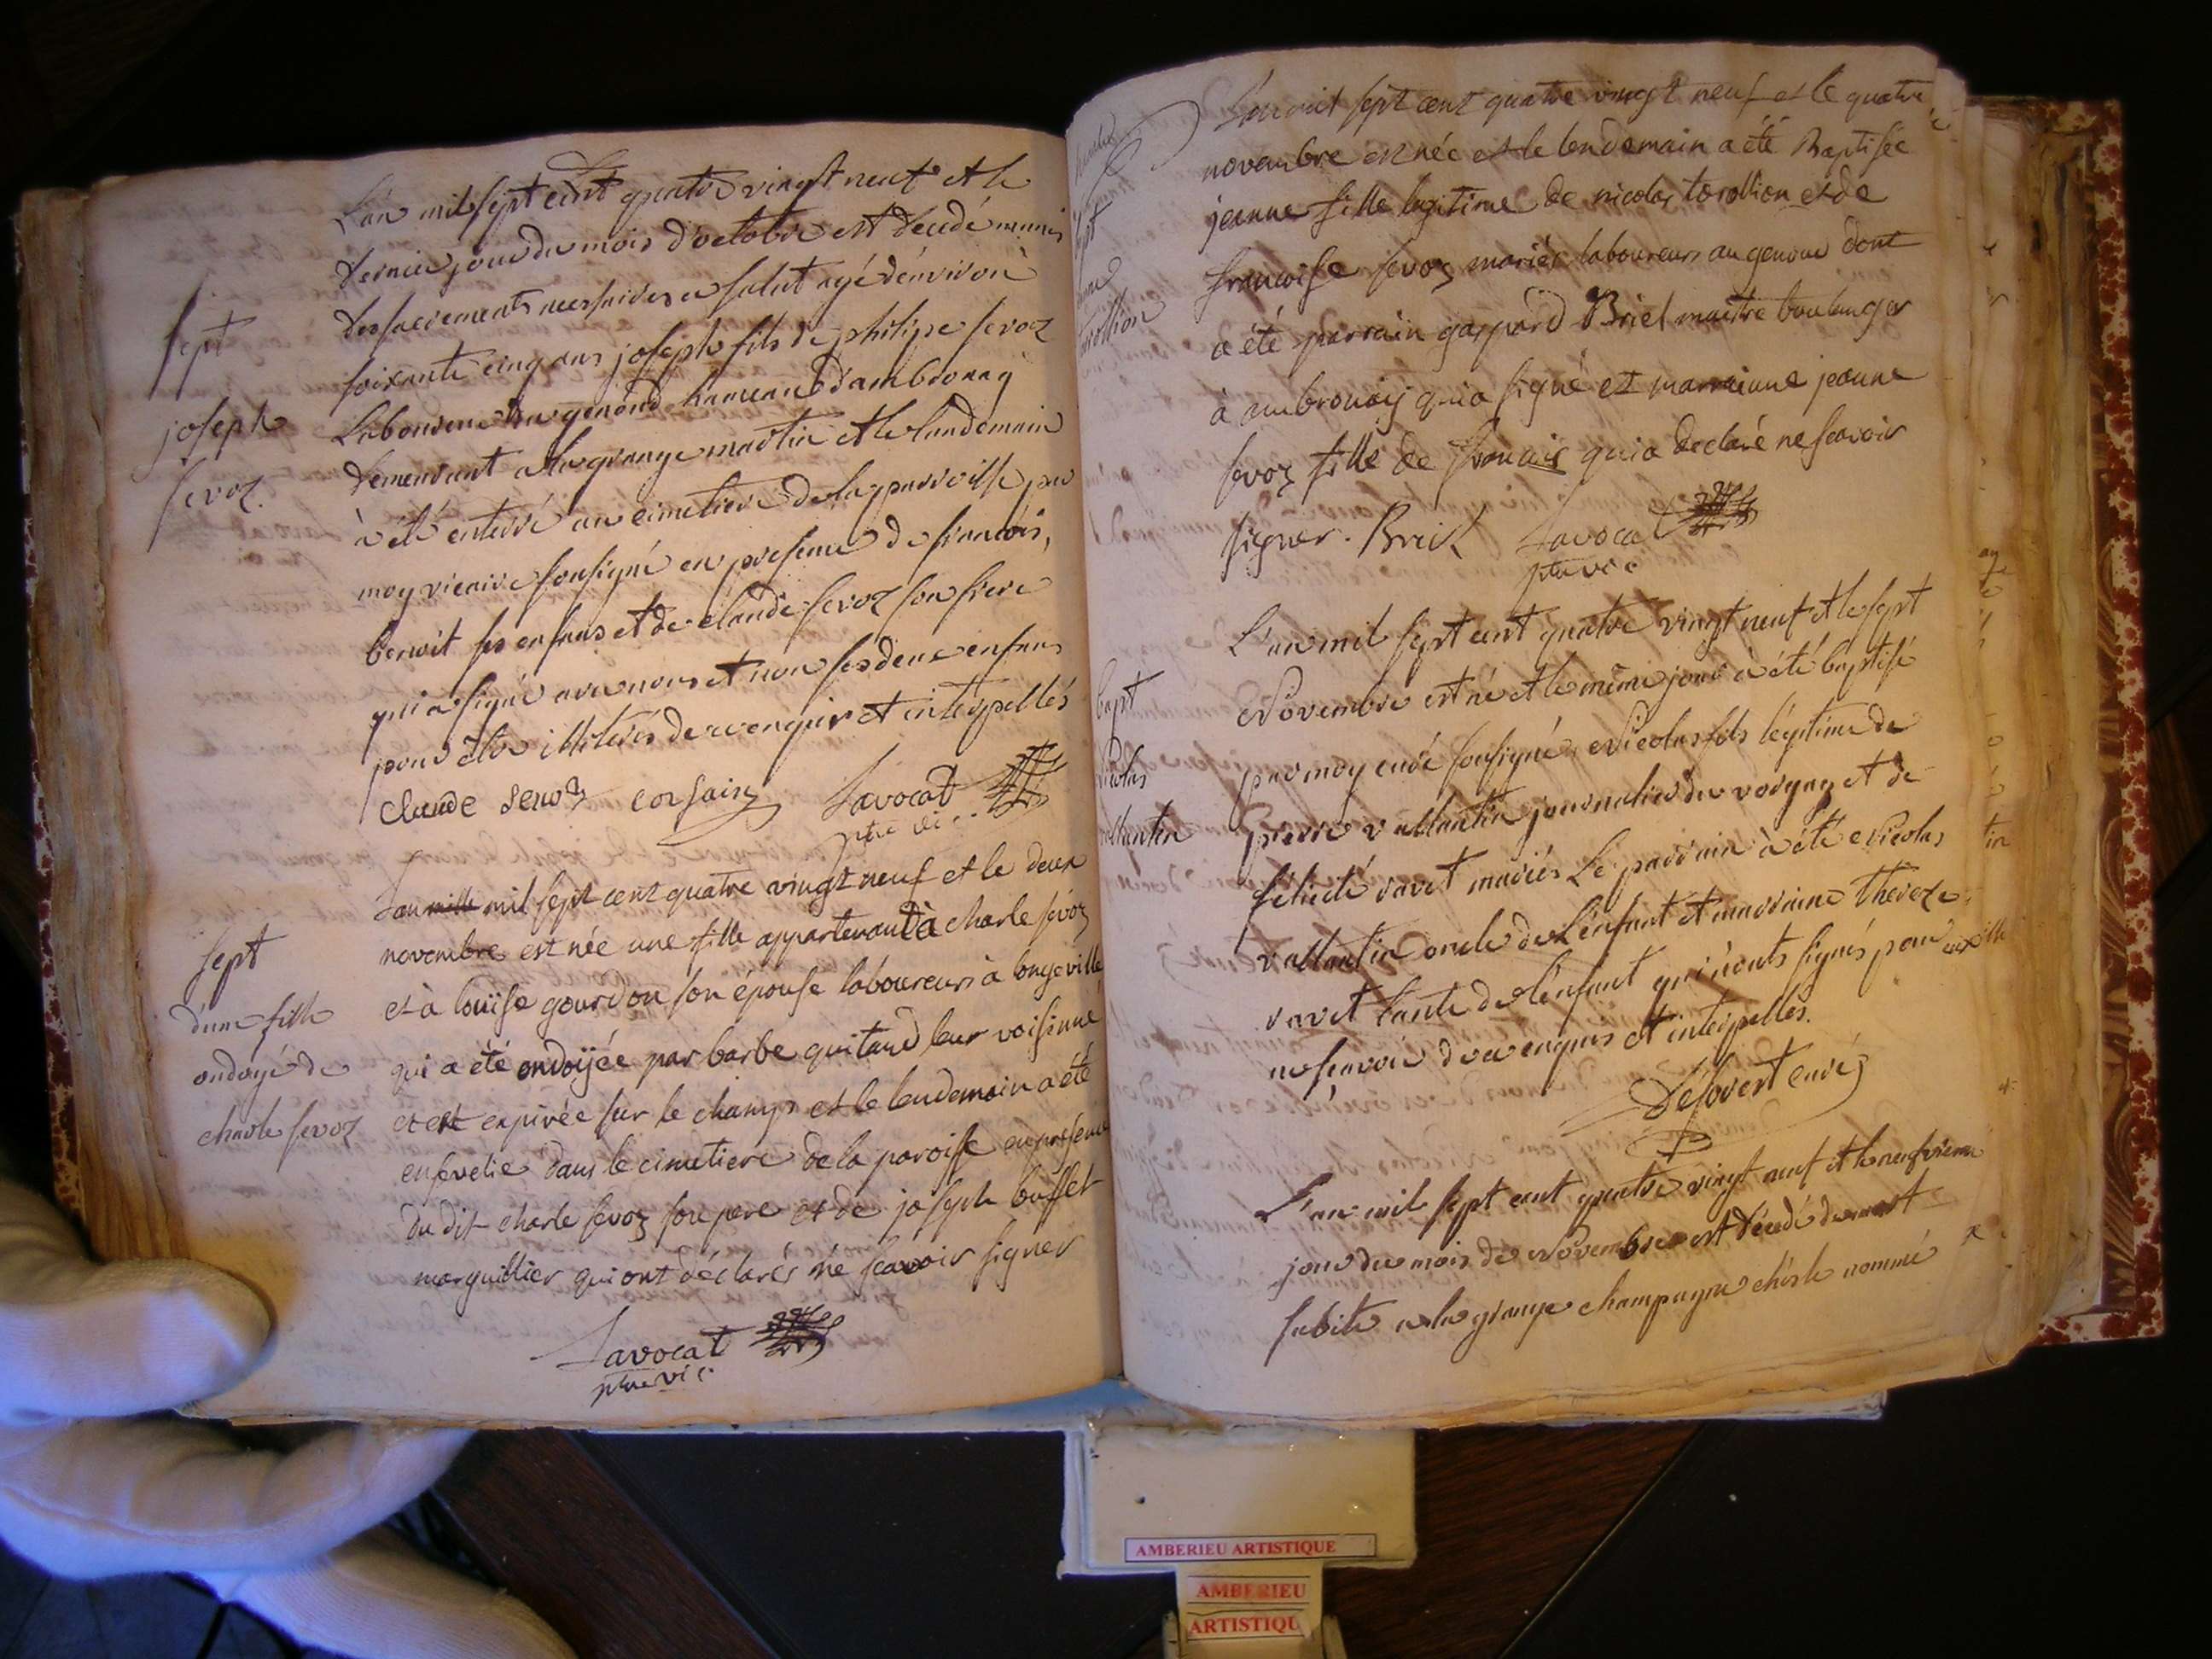 L'an mil sept cent quatre vingt neuf et le
dernier jour du mois d'octobre est decedé munis
des sacrements necessaires a salut agé d'environ
soixante cinq ans joseph fils de philipe sevoz
sept
joseph
sevoz.
Laboureur au genoud hameau d'ambronay
demeurant a la grange martin et le landemain
à été enterré au cimetiere de la parroisse par
moy vicaire sousigné en presence de francois,
benoit ses enfans et de claude sevoz son frere
qui a signé avec nous et non ses deux enfans
pour être illiterés de ce enquis et interpellés
Claude Sevoz Lavocat
ptre vi..
L'an mille mil sept cent quatre vingt neuf et le deux
novembre est née une fille appartenant à charle sevoz
et à louïse gourdon son épouse laboureurs à longeville
qui a été ondoÿée par barbe quitaud leur voisinne
et est expirée sur le champs et le lendemain a été
ensevelie dans le cimetiere de la paroisse en presence
du dit charle sevoz son pere et de joseph buffet
marguillier qui ont déclarés né scavoir signer
sept
d'une fille
ondoyé de
charle sevoz
Lavocat
ptre vic
L'an mil sept cent quatre vingt neuf et le quatre
novembre est née et le lendemain a été Baptisée
jeanne fille legitime de nicolas torollion et de
francoise sevoz mariés laboureurs au genoud dont
a été parrain gaspard Briel maitre boulanger
à ambronaÿ qui a signé et marrainne jeanne
sevoz fille de francois qui a declaré ne scavoir
signer. Briel Lavocat
ptre vic
L'an mil sept cent quatre vingt neuf et le sept
Novembre est né et le même jour à été baptisé
par moy curé sousigné, Nicolas fils légitime de
pierre vallantin journalier du vorgey et de
felicité ravet mariés Le parrain à été Nicolas
vallantin oncle de L'enfant et marraine thereze
ravet tante de L'enfant qui n'onts signés pour
ne scavoir de ce enquis et interpellés.
bapt
nicolas
vallantin
Désovert curé
L'an mil sept cent quatre vingt neuf et le neufvieme
jour du mois de Novembre est décédé de mort
subite a la grange champagne nommé
AMBERIEU ARTISTIQUE
AMBERIEU
ARTISTIQU